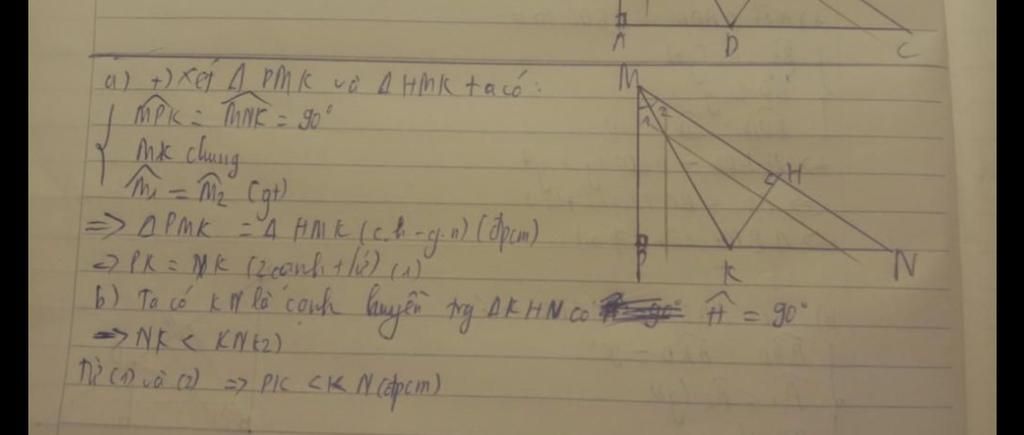 A D C
a) +) Xét Δ PMK và Δ HMK ta có:
MPK = MNK = 90°
MK chung
M1 = M2 (gt)
=> Δ PMK = Δ HMK (c.h-g.n) (đpcm)
=> PK = NK (2 cạnh t/ứ) (1)
b) Ta có KN là cạnh huyền trg ΔKHN có H = 90°
=> NK < KN (2)
Từ (1) và (2) => PK < KN (đpcm)
M
1 2
H
P K N